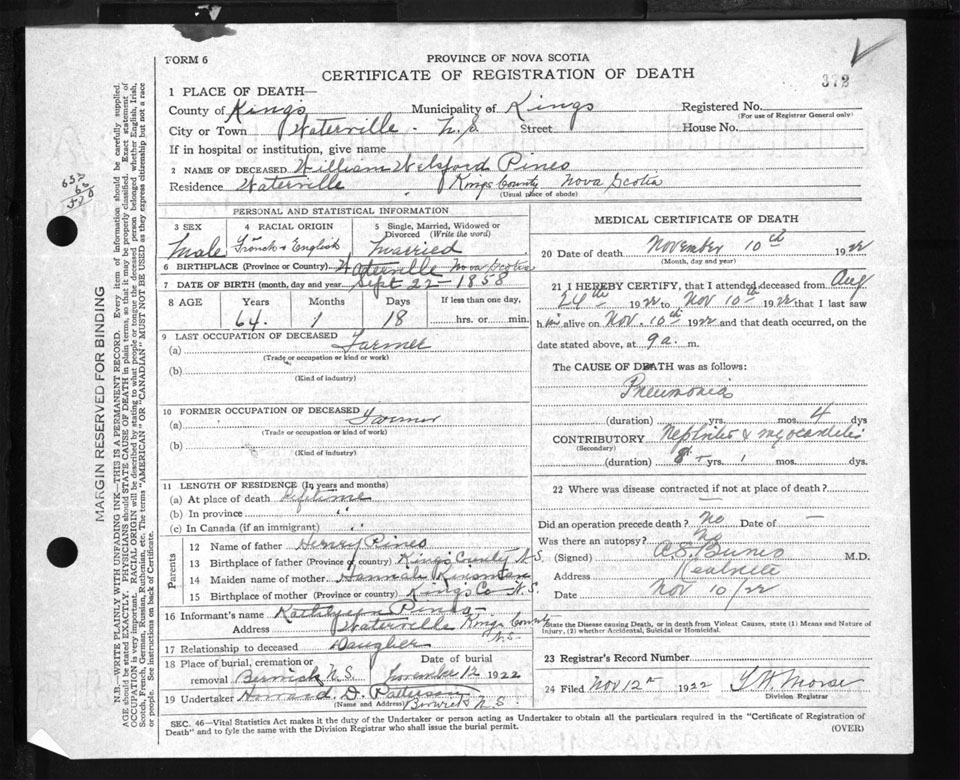 FORM 6
PROVINCE OF NOVA SCOTIA
CERTIFICATE OF REGISTRATION OF DEATH
372
1 PLACE OF DEATH—
County of Kings Municipality of Kings Registered No.
(For use of Registrar General only)
City or Town Waterville - N.S. Street House No.
If in hospital or institution, give name
2 NAME OF DECEASED William Welsford Pines
Residence Waterville Kings County Nova Scotia
(Usual place of abode)
PERSONAL AND STATISTICAL INFORMATION
3 SEX
Male
4 RACIAL ORIGIN
French & English
5 Single, Married, Widowed or Divorced (Write the word)
Married
6 BIRTHPLACE (Province or Country) Waterville Nova Scotia
7 DATE OF BIRTH (month, day and year) Sept 22 - 1858
8 AGE Years Months Days If less than one day,
64 1 18 hrs. or min.
9 LAST OCCUPATION OF DECEASED
(a) Farmer
(Trade or occupation or kind or work)
(b)
(Kind of industry)
10 FORMER OCCUPATION OF DECEASED
(a) Farmer
(Trade or occupation or kind of work)
(b)
(Kind of industry)
11 LENGTH OF RESIDENCE (In years and months)
(a) At place of death lifetime
(b) In province "
(c) In Canada (if an immigrant) "
Parents
12 Name of father Henry Pines
13 Birthplace of father (Province or country) Kings County N.S.
14 Maiden name of mother Hannah Kinsman
15 Birthplace of mother (Province or country) Kings Co N.S.
16 Informant's name Pines
Address Waterville Kings County N.S.
17 Relationship to deceased Daugher
18 Place of burial, cremation or removal Berwick N.S. Date of burial November 12 1922
19 Undertaker Howard D. Patterson
(Name and Address) Berwick N.S.
MEDICAL CERTIFICATE OF DEATH
20 Date of death November 10th 1922
(Month, day and year)
21 I HEREBY CERTIFY, that I attended deceased from Aug
24th 1922 to Nov 10th 1922 that I last saw
him alive on Nov. 10th 1922 and that death occurred, on the
date stated above, at 9 a. m.
The CAUSE OF DEATH was as follows:
Pneumonia
(duration) yrs. mos. 4 dys
CONTRIBUTORY Nephritis & myocarditis
(Secondary)
(duration) yrs. mos. dys.
22 Where was disease contracted if not at place of death?
Did an operation precede death? No Date of —
Was there an autopsy? No
(Signed) M.D.
Address
Date Nov 10/22
State the Disease causing Death, or in death from Violent Causes, state (1) Means and Nature of
Injury, (2) whether Accidental, Suicidal or Homicidal.
23 Registrar's Record Number
24 Filed Nov 12th 1922 Morse
Division Registrar
SEC. 46—Vital Statistics Act makes it the duty of the Undertaker or person acting as Undertaker to obtain all the particulars required in the "Certificate of Registration of
Death" and to fyle the same with the Division Registrar who shall issue the burial permit.
(OVER)
MARGIN RESERVED FOR BINDING
N.B.—WRITE PLAINLY WITH UNFADING INK—THIS IS A PERMANENT RECORD. Every item of information should be carefully supplied.
AGE should be stated EXACTLY. PHYSICIANS should STATE CAUSE OF DEATH in plain terms, so that it may be properly classified. Exact statement of
OCCUPATION is very important. RACIAL ORIGIN will be described by stating to what people or tongue the deceased person belonged whether English, Irish,
Scotch, French, German, Russian, Ruthenian, etc. The terms "AMERICAN" OR "CANADIAN" MUST NOT BE USED as they express citizenship but not a race
or people. See instructions on back of Certificate.